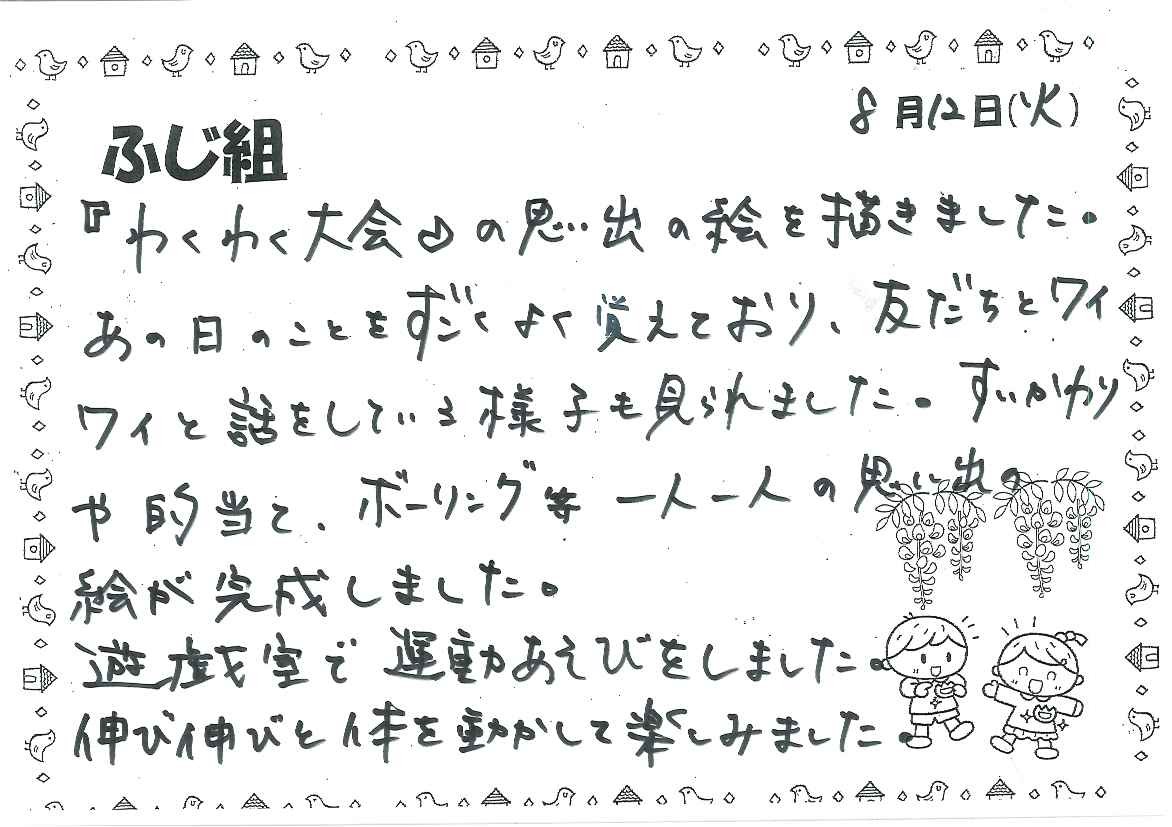 8月12日(火)
ふじ組
『わくわく大会♪』の思い出の絵を描きました。
あの日のことをすごくよく覚えており、友だちとワイ
ワイと話をしている様子も見られました。すいかわり
や的当て、ボーリング等 一人一人の思い出の
絵が完成しました。
遊戯室で運動あそびをしました。
伸び伸びと体を動かして楽しみました。